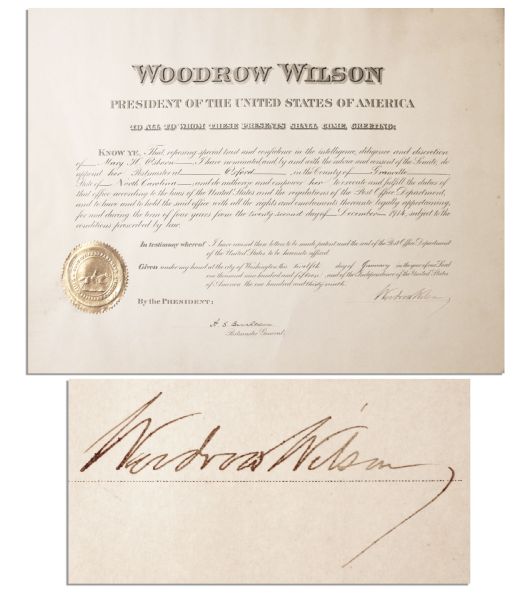 WOODROW WILSON
PRESIDENT OF THE UNITED STATES OF AMERICA
TO ALL TO WHOM THESE PRESENTS SHALL COME, GREETING:
KNOW YE, That reposing special trust and confidence in the intelligence, diligence and discretion
of Mary H. I have nominated, and by and with the advice and consent of the Senate, do
appoint her Postmaster at Oxford, in the County of Granville
State of North Carolina, and do authorize and empower her to execute and fulfill the duties of
that office according to the laws of the United States and the regulations of the Post Office Department,
and to have and to hold the said office with all the rights and emoluments thereunto legally appertaining,
for and during the term of four years from the twenty second day of December 1914, subject to the
conditions prescribed by law.
In testimony whereof I have caused these letters to be made patent and the seal of the Post Office Department
of the United States to be hereunto affixed.
Given under my hand at the city of Washington, this twelfth day of January in the year of our Lord
one thousand nine hundred and fifteen, and of the Independence of the United States
of America the one hundred and thirty ninth.
Woodrow Wilson
By the PRESIDENT:
A. S. Burleson
Postmaster General.
Woodrow Wilson